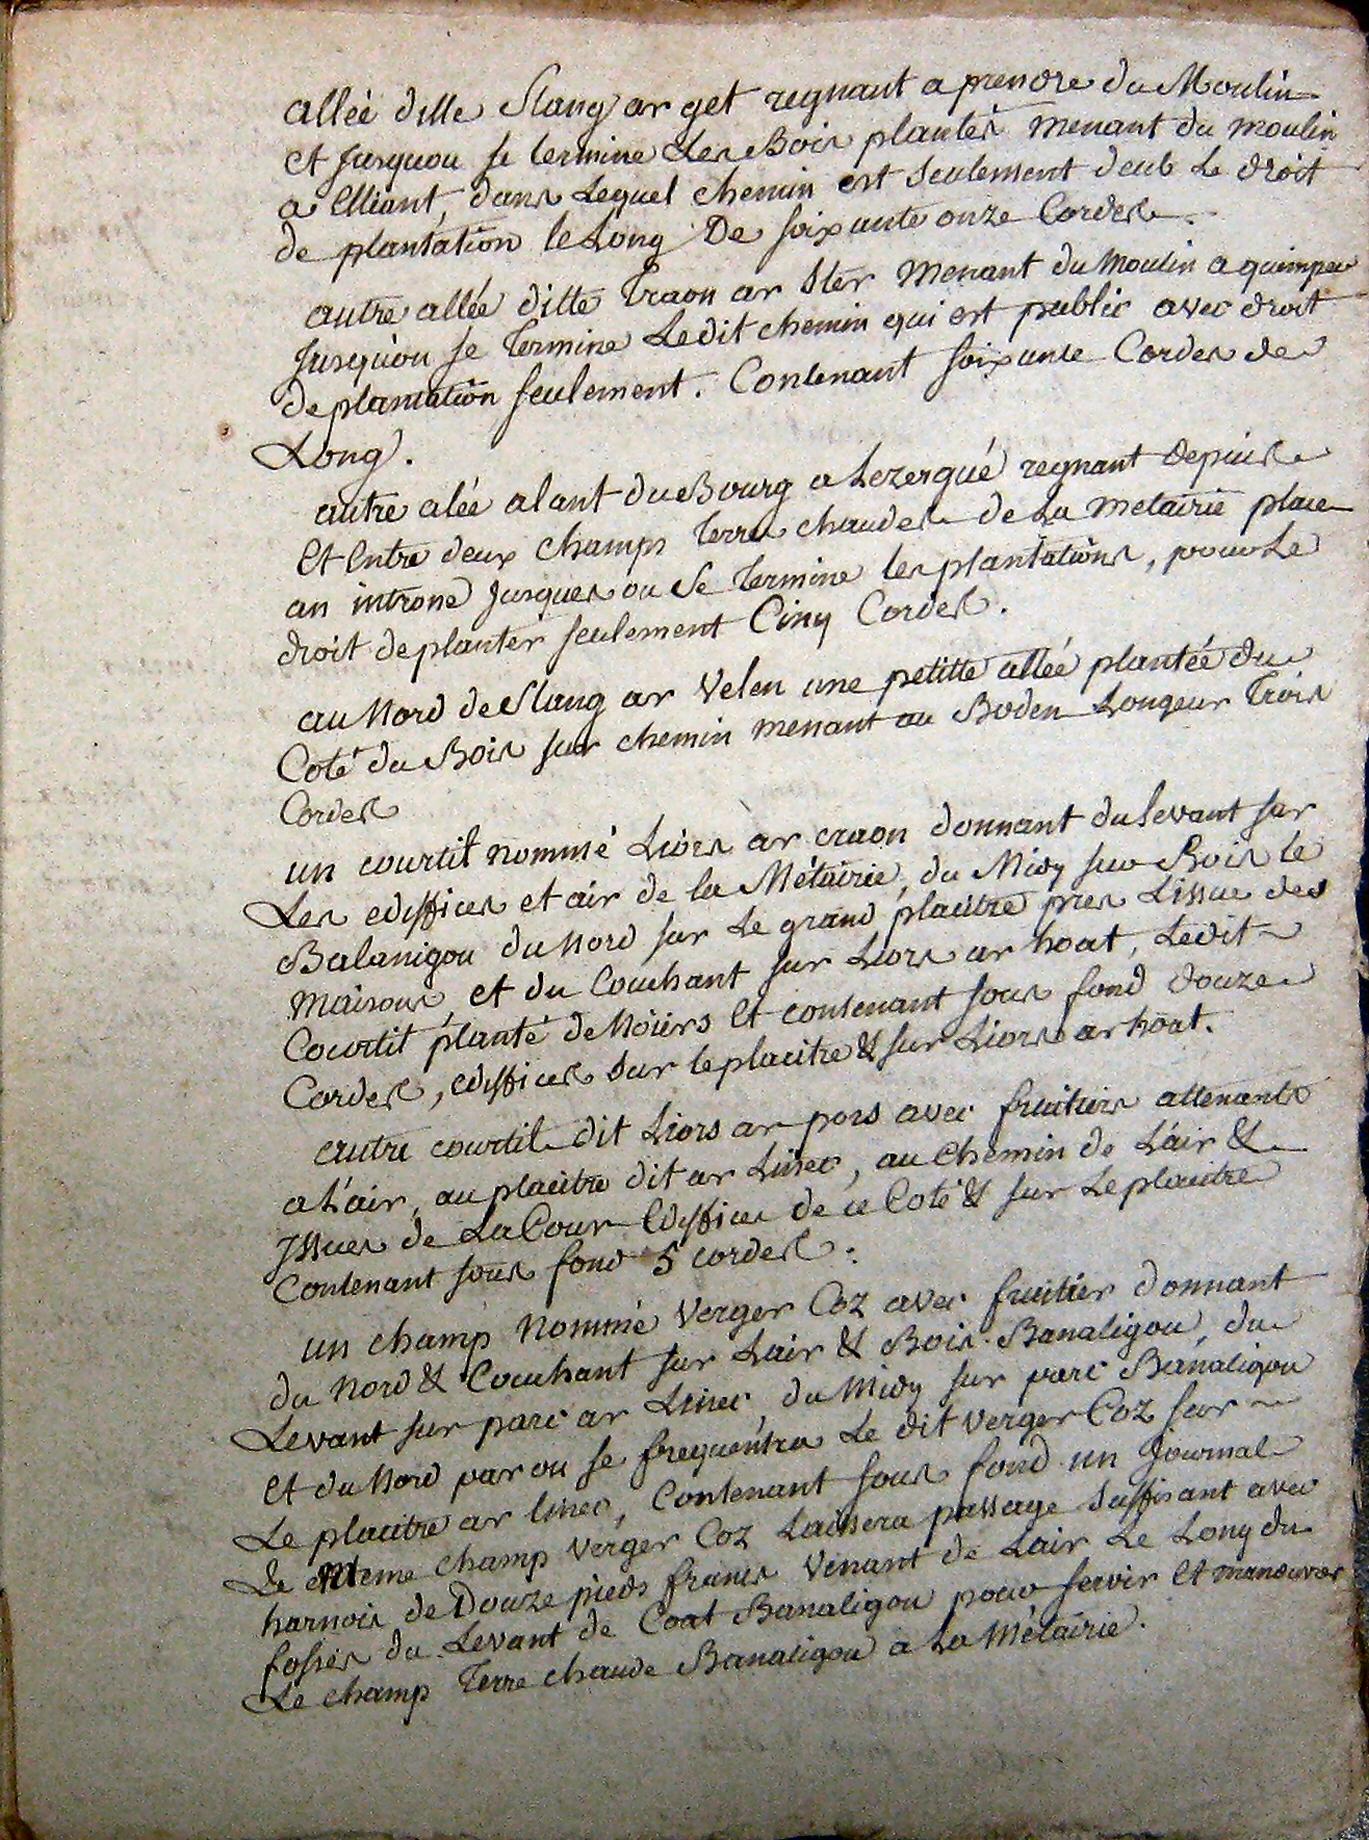 allée ditte Stang ar get regnant a prendre du Moulin
et jusquou se termine les Bois plantés menant du moulin
a Elliant, dans Lequel chemin est seulement deub Le droit
de plantation le Long De soixante onze Cordes.
autre allée ditte Traon ar Ster menant du Moulin a quimper
jusqu'ou se Termine Ledit chemin qui est public avec droit
de plantation seulement. Contenant soixante Cordes de
Long.
autre alée alant du Bourg a Lezergué regnant depuis
Et Entre deux champs Terres chaudes de La metairie place
an introné jusques ou Se Termine les plantations, pour Le
droit de planter seulement Cinq Cordes.
au Nord de Stang ar Velen une petitte allée plantée du
Coté du Bois sur chemin menant au Boden Longeur Trois
Cordes
un courtil nommé Liors ar craon donnant du levant sur
Les ediffices et air de la Métairie, du Midy sur Bois le
Balanigou du Nord sur Le grand placitre pres Lissue des
maisons, et du Couchant sur Liors ar hoat, Ledit
Courtil planté de Noiers Et contenant sous fond douze
Cordes, ediffices sur le placitre & sur Liors ar hoat.
autre courtil dit Liors ar pors avec fruitiers attenants
a L'air, au placitre dit ar Linec, au Chemin de L'air &
Issues de La Cour Ediffices de ce Coté & sur Le placitre
Contenant sous fond 5 cordes.
un champ nommé Verger Coz avec fruitier donnant
du Nord & Couchant sur Lair & Bois Banaligou, du
Levant sur parc ar Linec, du Midy sur parc Banaligou
Et du Nord par ou se frequentra Le dit Verger Coz sur
Le placitre ar linec, Contenant sous fond un Journal
Le Meme champ Verger Coz Laissera passage suffisant avec
harnois de Douze pieds francs Venant de Lair Le Long du
fossés du Levant de Coat Banaligou pour servir Et manœuvrer
Le champ Terre chaude Banaligou a La Métairie.